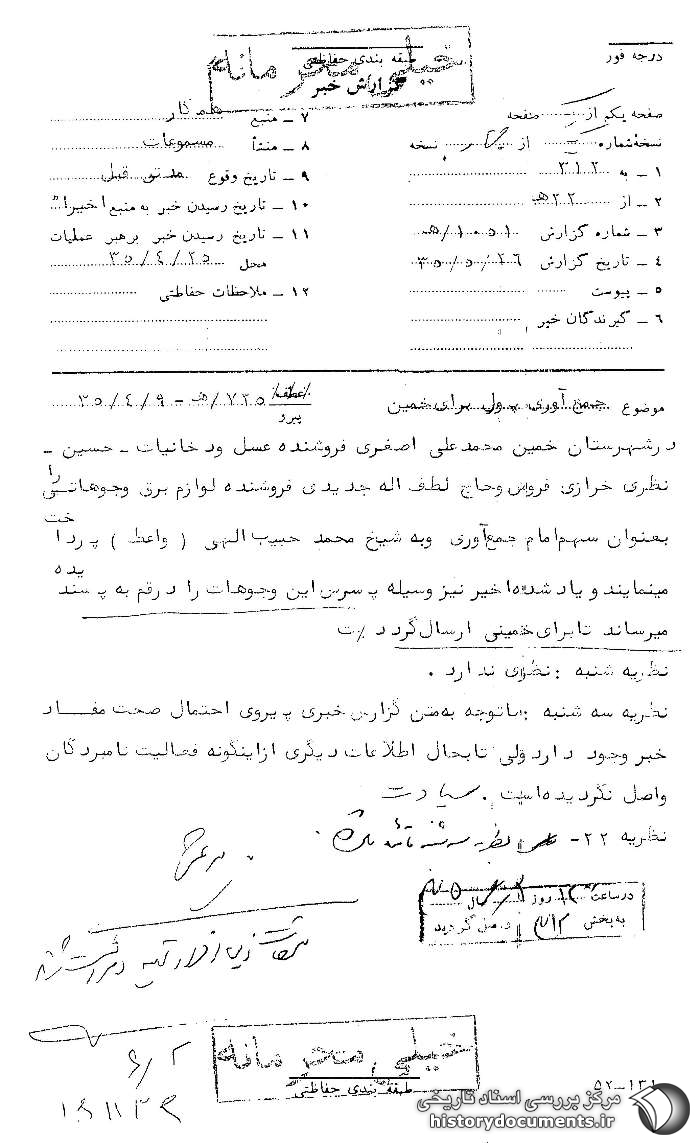 خیلی محرمانه
درجه فور
طبقه بندی حفاظتی
گزارش خبر
صفحه یک از صفحه
نسخه شماره از نسخه
۱ - به ۳۱۲
۲ - از ۲۲ هـ
۳ - شماره گزارش ۱۰۰۵۱/هـ
۴ - تاریخ گزارش ۳۵/۵/۲۶
۵ - پیوست
۶ - گیرندگان خبر
۷ - منبع همکار
۸ - منشأ مسموعات
۹ - تاریخ وقوع مدتی قبل
۱۰ - تاریخ رسیدن خبر به منبع اخیراً
۱۱ - تاریخ رسیدن خبر برهبر عملیات
محل ۳۵/۴/۲۵
۱۲ - ملاحظات حفاظتی
موضوع جمع آوری پول برای خمین عطف پیرو ۷۲۵/هـ - ۳۵/۴/۹
درشهرستان خمین محمدعلی اصغری فروشنده عسل ودخانیات - حسین -
نظری خرازی فروش وحاج لطف اله جدیدی فروشنده لوازم برق وجوهاتی را
بعنوان سهم امام جمع‌آوری وبه شیخ محمد حبیب الهی (واعظ) پرداخت
مینمایند و یاد شده اخیر نیز وسیله پسرش این وجوهات را درقم به پسندیده
میرساند تابرای خمینی ارسال گردد /ت
نظریه شنبه : نظری ندارد .
نظریه سه شنبه : باتوجه به متن گزارش خبری پیروی احتمال صحت مفاد
خبر وجود دارد ولی تابحال اطلاعات دیگری از اینگونه فعالیت نامبردگان
واصل نگردیده است . سیادت
نظریه ۲۲ - نظریه سه شنبه تائید میشود .
در ساعت روز سال
به بخش ۳۱۲ واصل گردید
خیلی محرمانه
طبقه بندی حفاظتی
۶/۲
۵۲-۱۳۱
مرکز بررسی اسناد تاریخی
historydocuments.ir